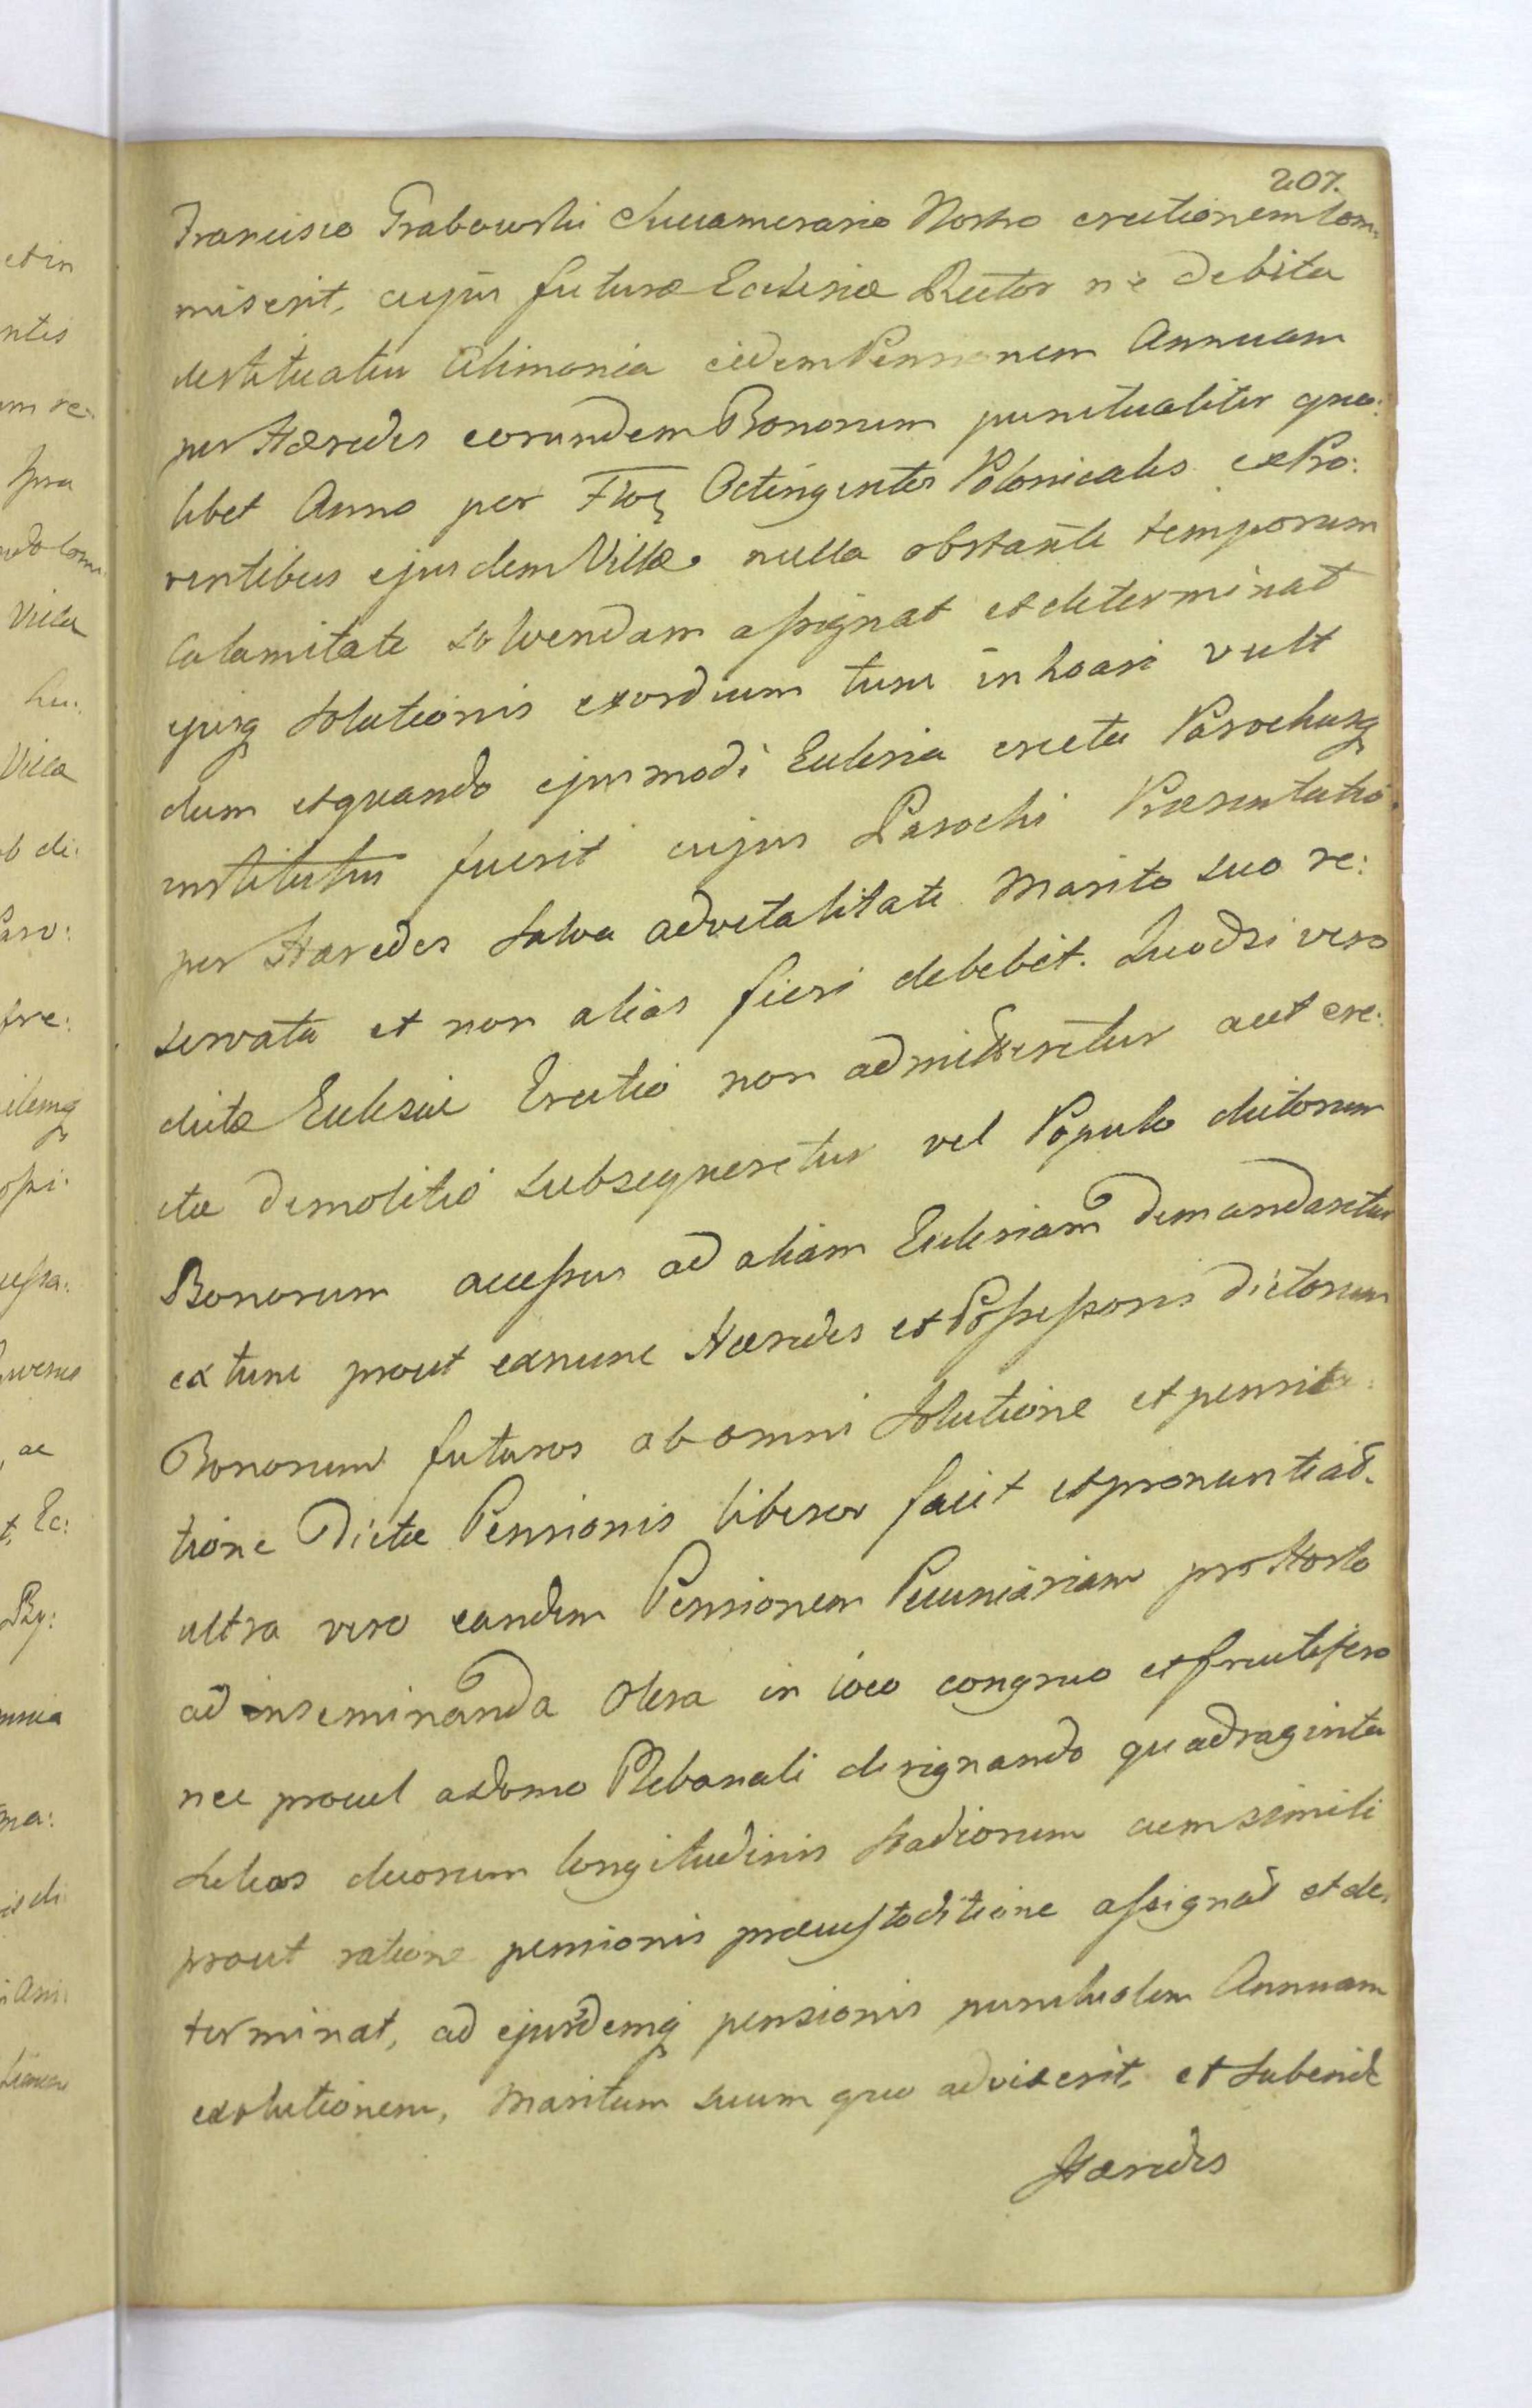 207.
Francisco Grabowski Succamerario Nostro erectionem com:
miserit, cujus futuræ Ecclesiæ Rector ne debita
destituatur Alimonia eidem Pensionem Annuam
per Hæredes eorundem Bonorum punctualiter quo:
libet Anno per Flor Octingentos Polonicales ex Pro:
ventibus ejusdem Villæ nulla obstante temporum
Calamitate solvendam assignat et determinat
ejusq solutionis exordium tunc inhoari vult
dum et quando ejusmodi Ecclesia erecta Parochusq
institutus fuerit cujus Parochi Præsentatio
per Hæredes salva advitalitate Marito suo re:
servata et non alias fieri debebit. Quodsi vero
dictæ Ecclesiæ Erectio non admitteretur aut ere:
ctæ demolitio subsequeretur vel Populo dictorum
Bonorum accessus ad aliam Ecclesiam demandaretur
ex tunc prout exnunc Hæredes et Possessores dictorum
Bonorum futuros ab omni solutione et pensita:
tione dictæ Pensionis liberos facit et pronuntiat.
ultra vero eandem Pensionem Pecuniariam pro Horto
ad inseminanda Olera in loco congruo et fructifero
nec procul a domo Plebanali designando quadraginta
sulcos duorum longitudinis stadiorum cum simili
prout ratione pensionis præcustoditione assignat et de:
terminat, ad ejusdemq pensionis punctualem Annuam
exolutionem, Maritum suum quo advixerit, et subinde
Hæredes
etin
ntis
um re:
pra
ndo com:
Villa
hu:
Villa
ob di:
Paro:
fre:
idemq
opi:
cessa:
ac
t, Ec:
By:
ma:
is di